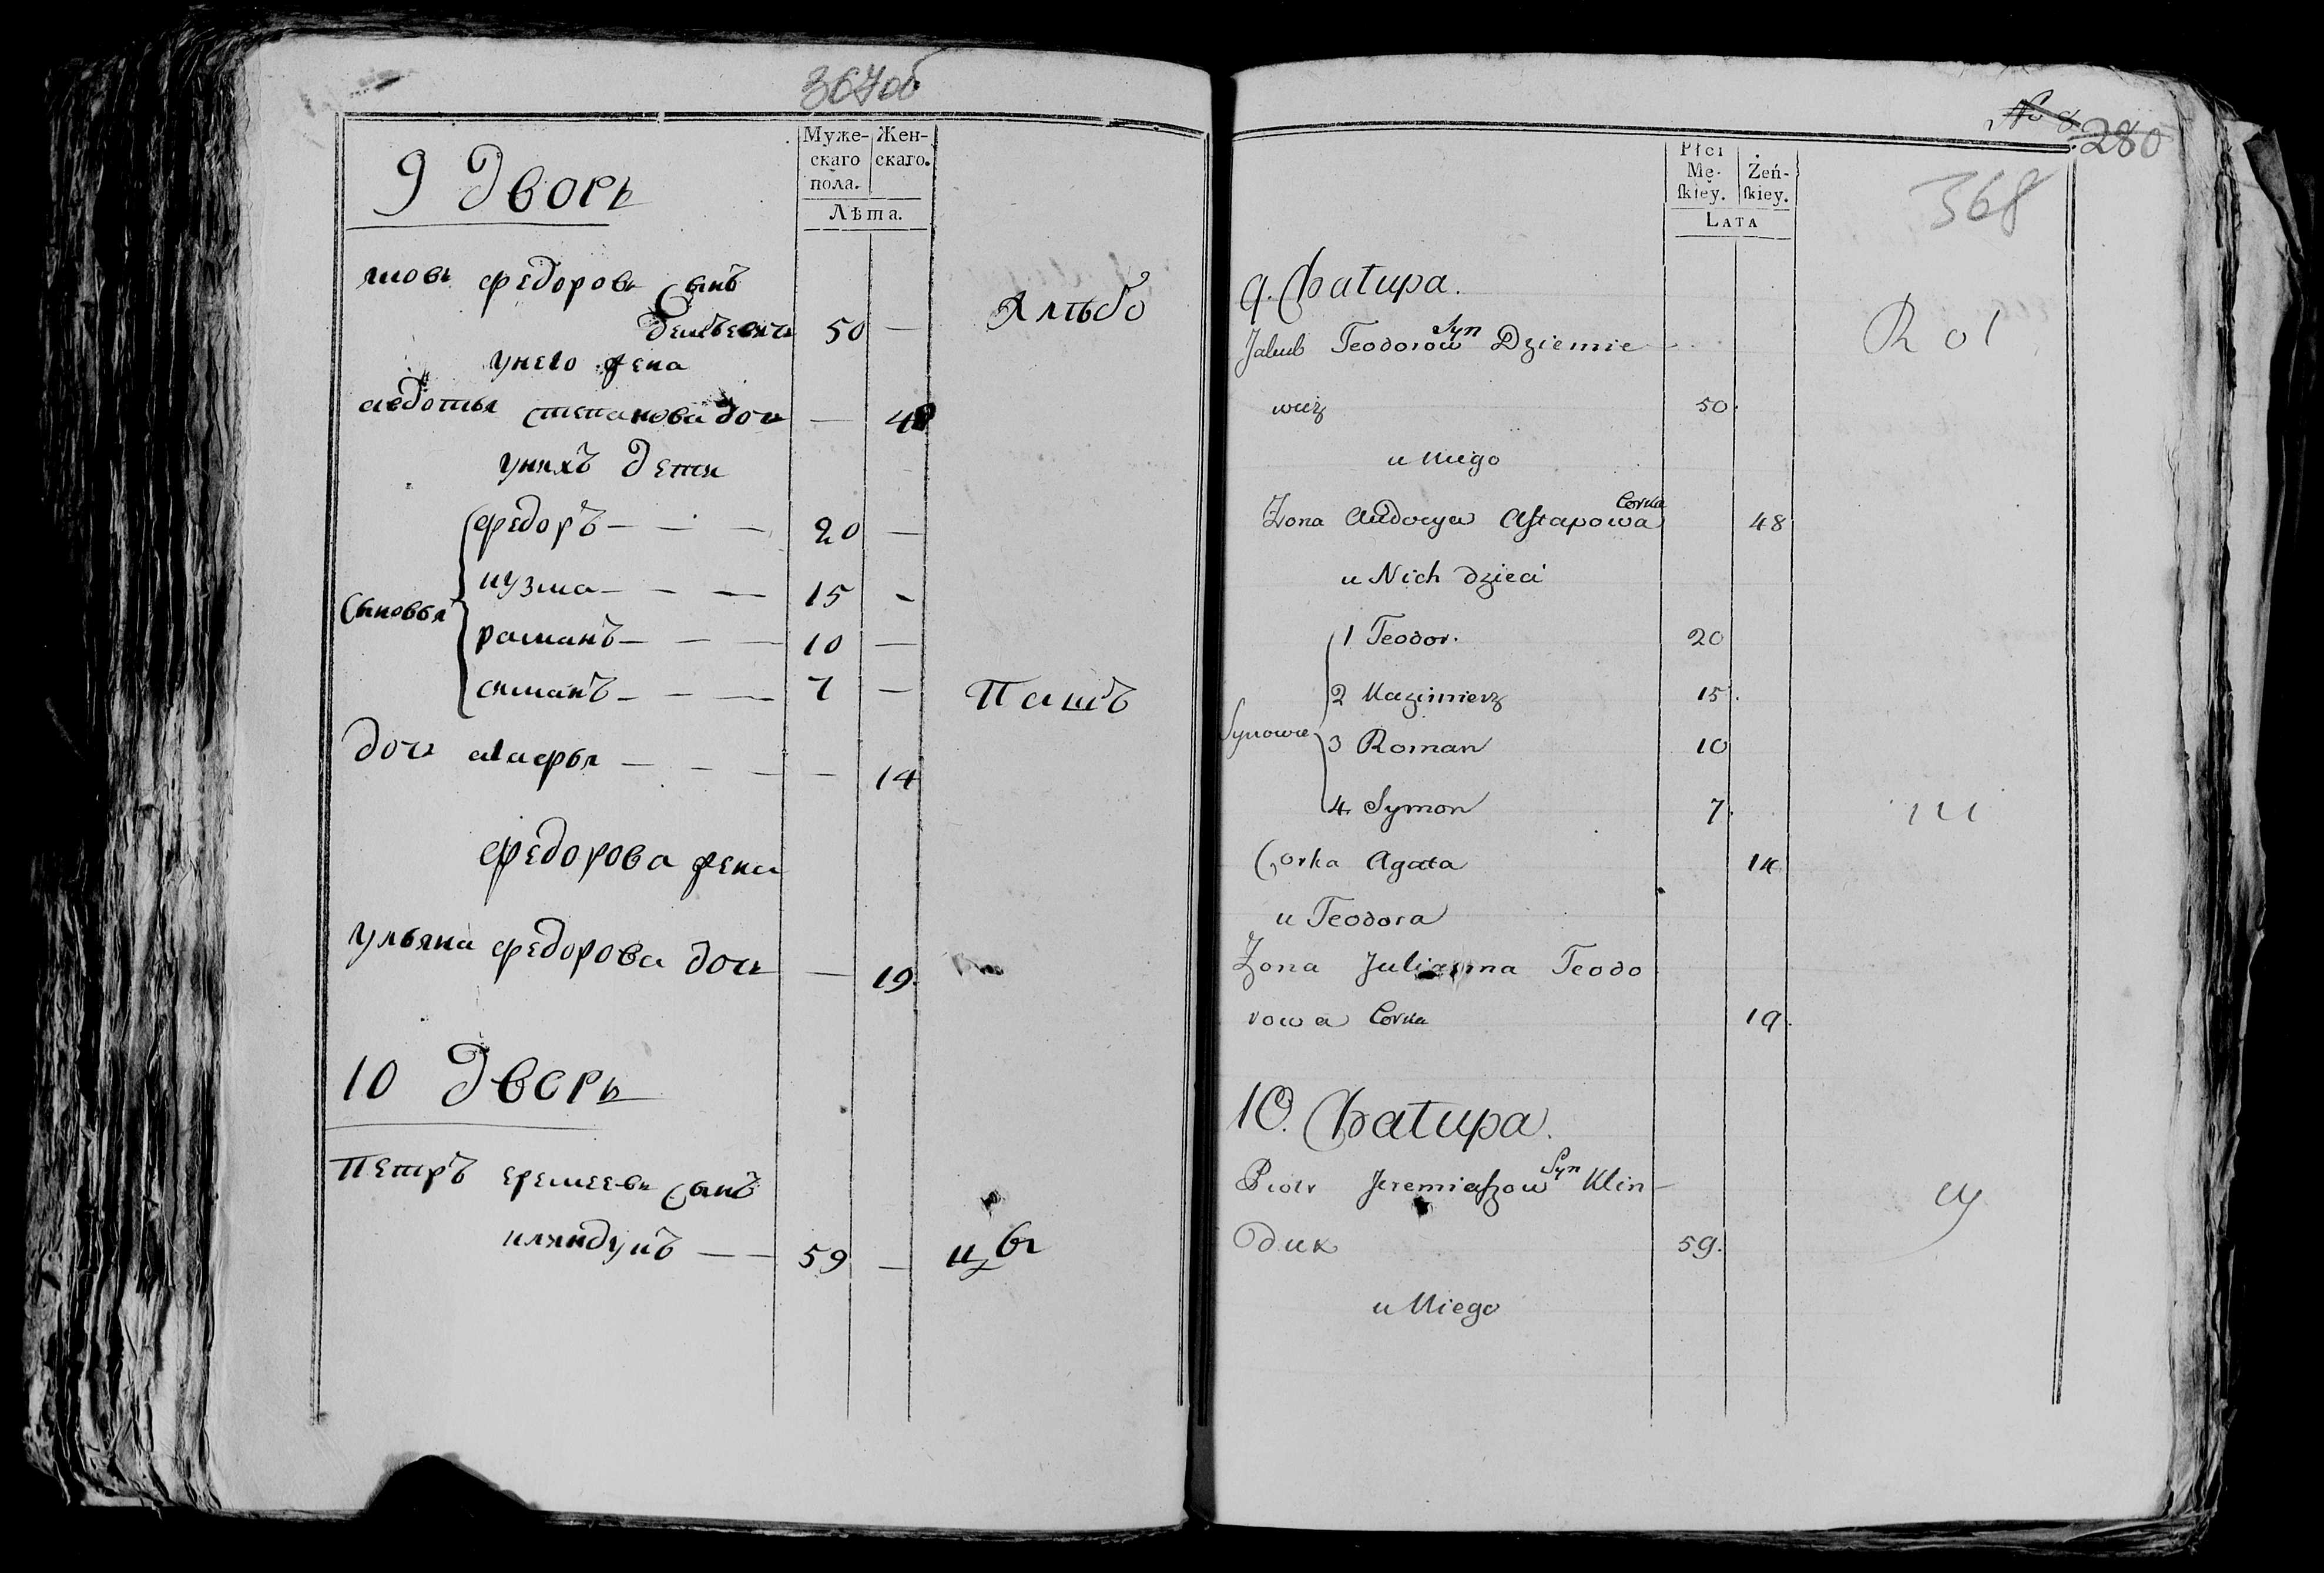 367 об
Муже- Жен-
скаго скаго.
пола.
Лѣта.
9 Дворъ
яковъ федоровъ сынъ
демьевичъ 50 — Альбо
унего жена
авдотья степанова дочь — 48
унихъ дети
федоръ — — — 20 —
кузма — — — 15 —
Сыновья
романъ — — — 10 —
симанъ — — — 7 — Пашъ
дочь агафья — — — — 14
федорова жена
ульяна федорова дочь — 19.
10 Дворъ
Петръ еремеевъ сынъ
клиндукъ — — 59 —
№ 8
280
368
Płci
Mę- Żeń-
ſkiey. ſkiey.
LATA
9. Chałupa.
Jakub Teodorow Syn Dziemie
wicz 50.
Rol
u Niego
Zona Audocya Aſtapowa Corka 48
u Nich dzieci
1 Teodor. 20
2 Kazimierz 15.
Synowie
3 Roman 10
4 Symon 7.
Corka Agata 14
u Teodora
Zona Julianna Teodo
rowa Corka 19.
10. Chałupa.
Piotr Jeremiaſzow Syn Klin-
duk 59.
u Niego